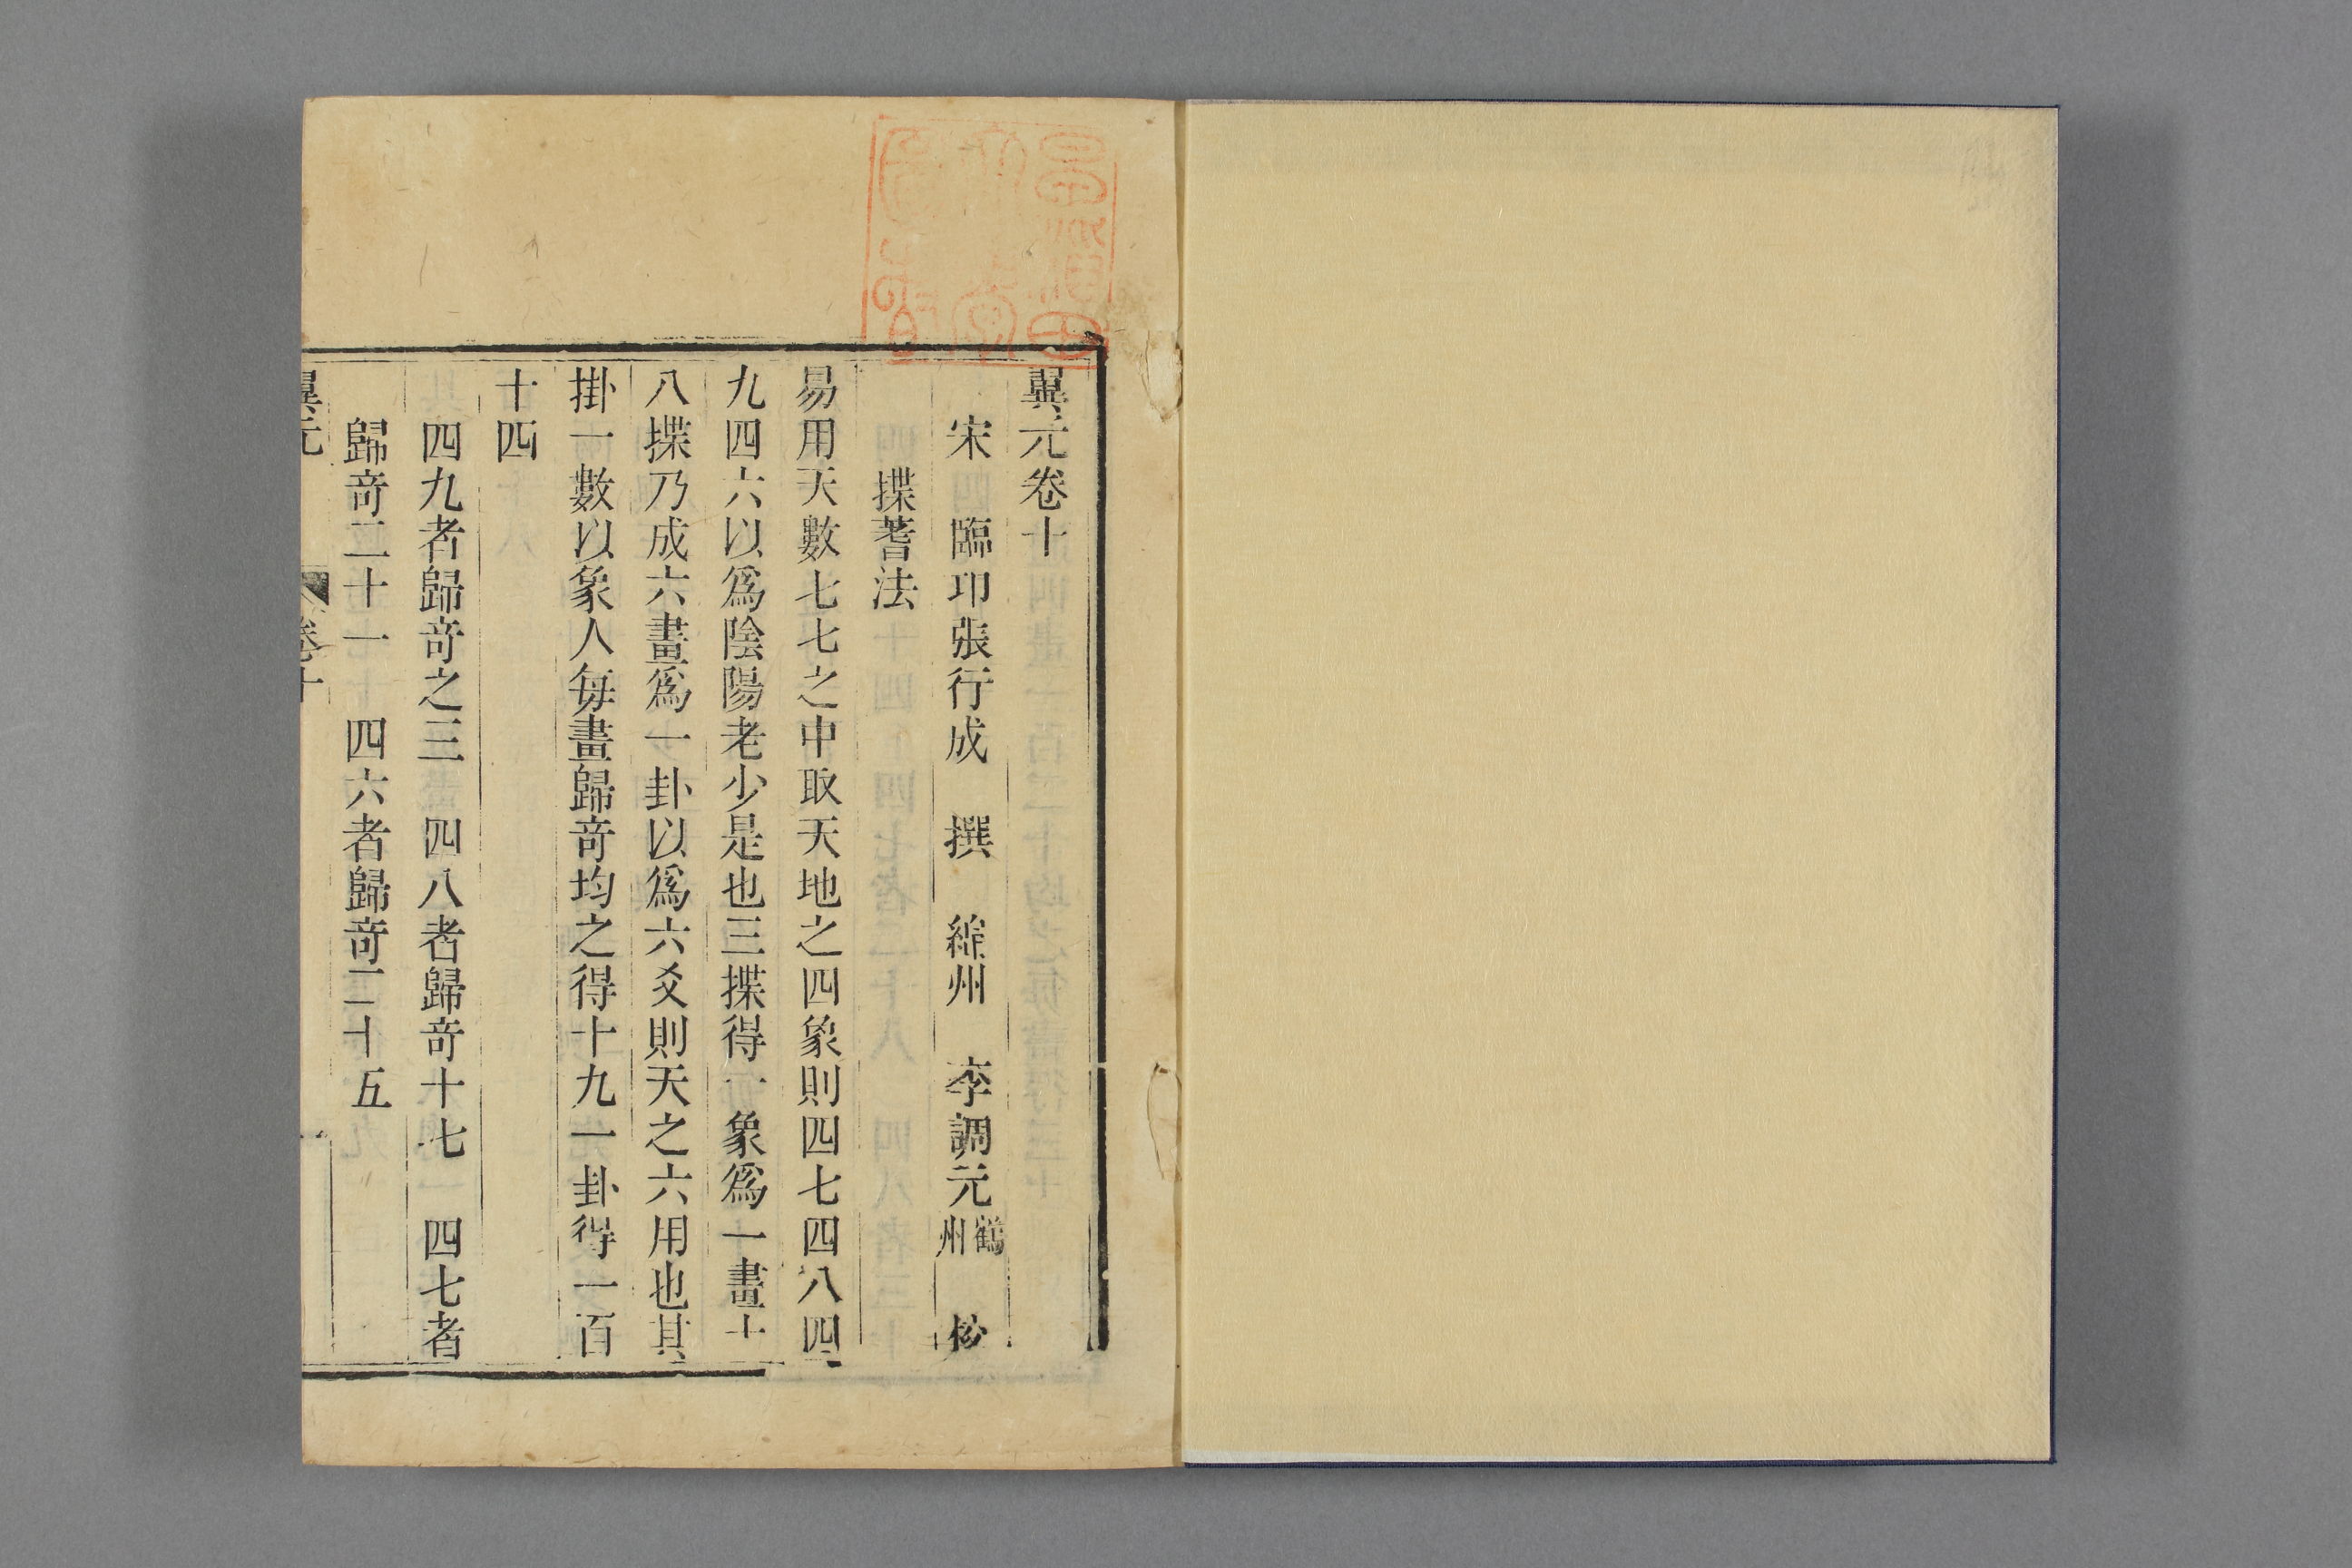 翼元卷十
宋　臨卭張行成　撰　緜州　李調元鶴州　校
揲蓍法
易用天數七七之中取天地之四象則四七四八四
九四六以爲陰陽老少是也三揲得一象爲一畫十
八揲乃成六畫爲一卦以爲六爻則天之六用也其
掛一數以象人每畫歸奇均之得十九一卦得一百
十四
四九者歸奇之三　四八者歸奇十七　四七者
歸奇二十一　四六者歸奇二十五
翼元　卷十　一